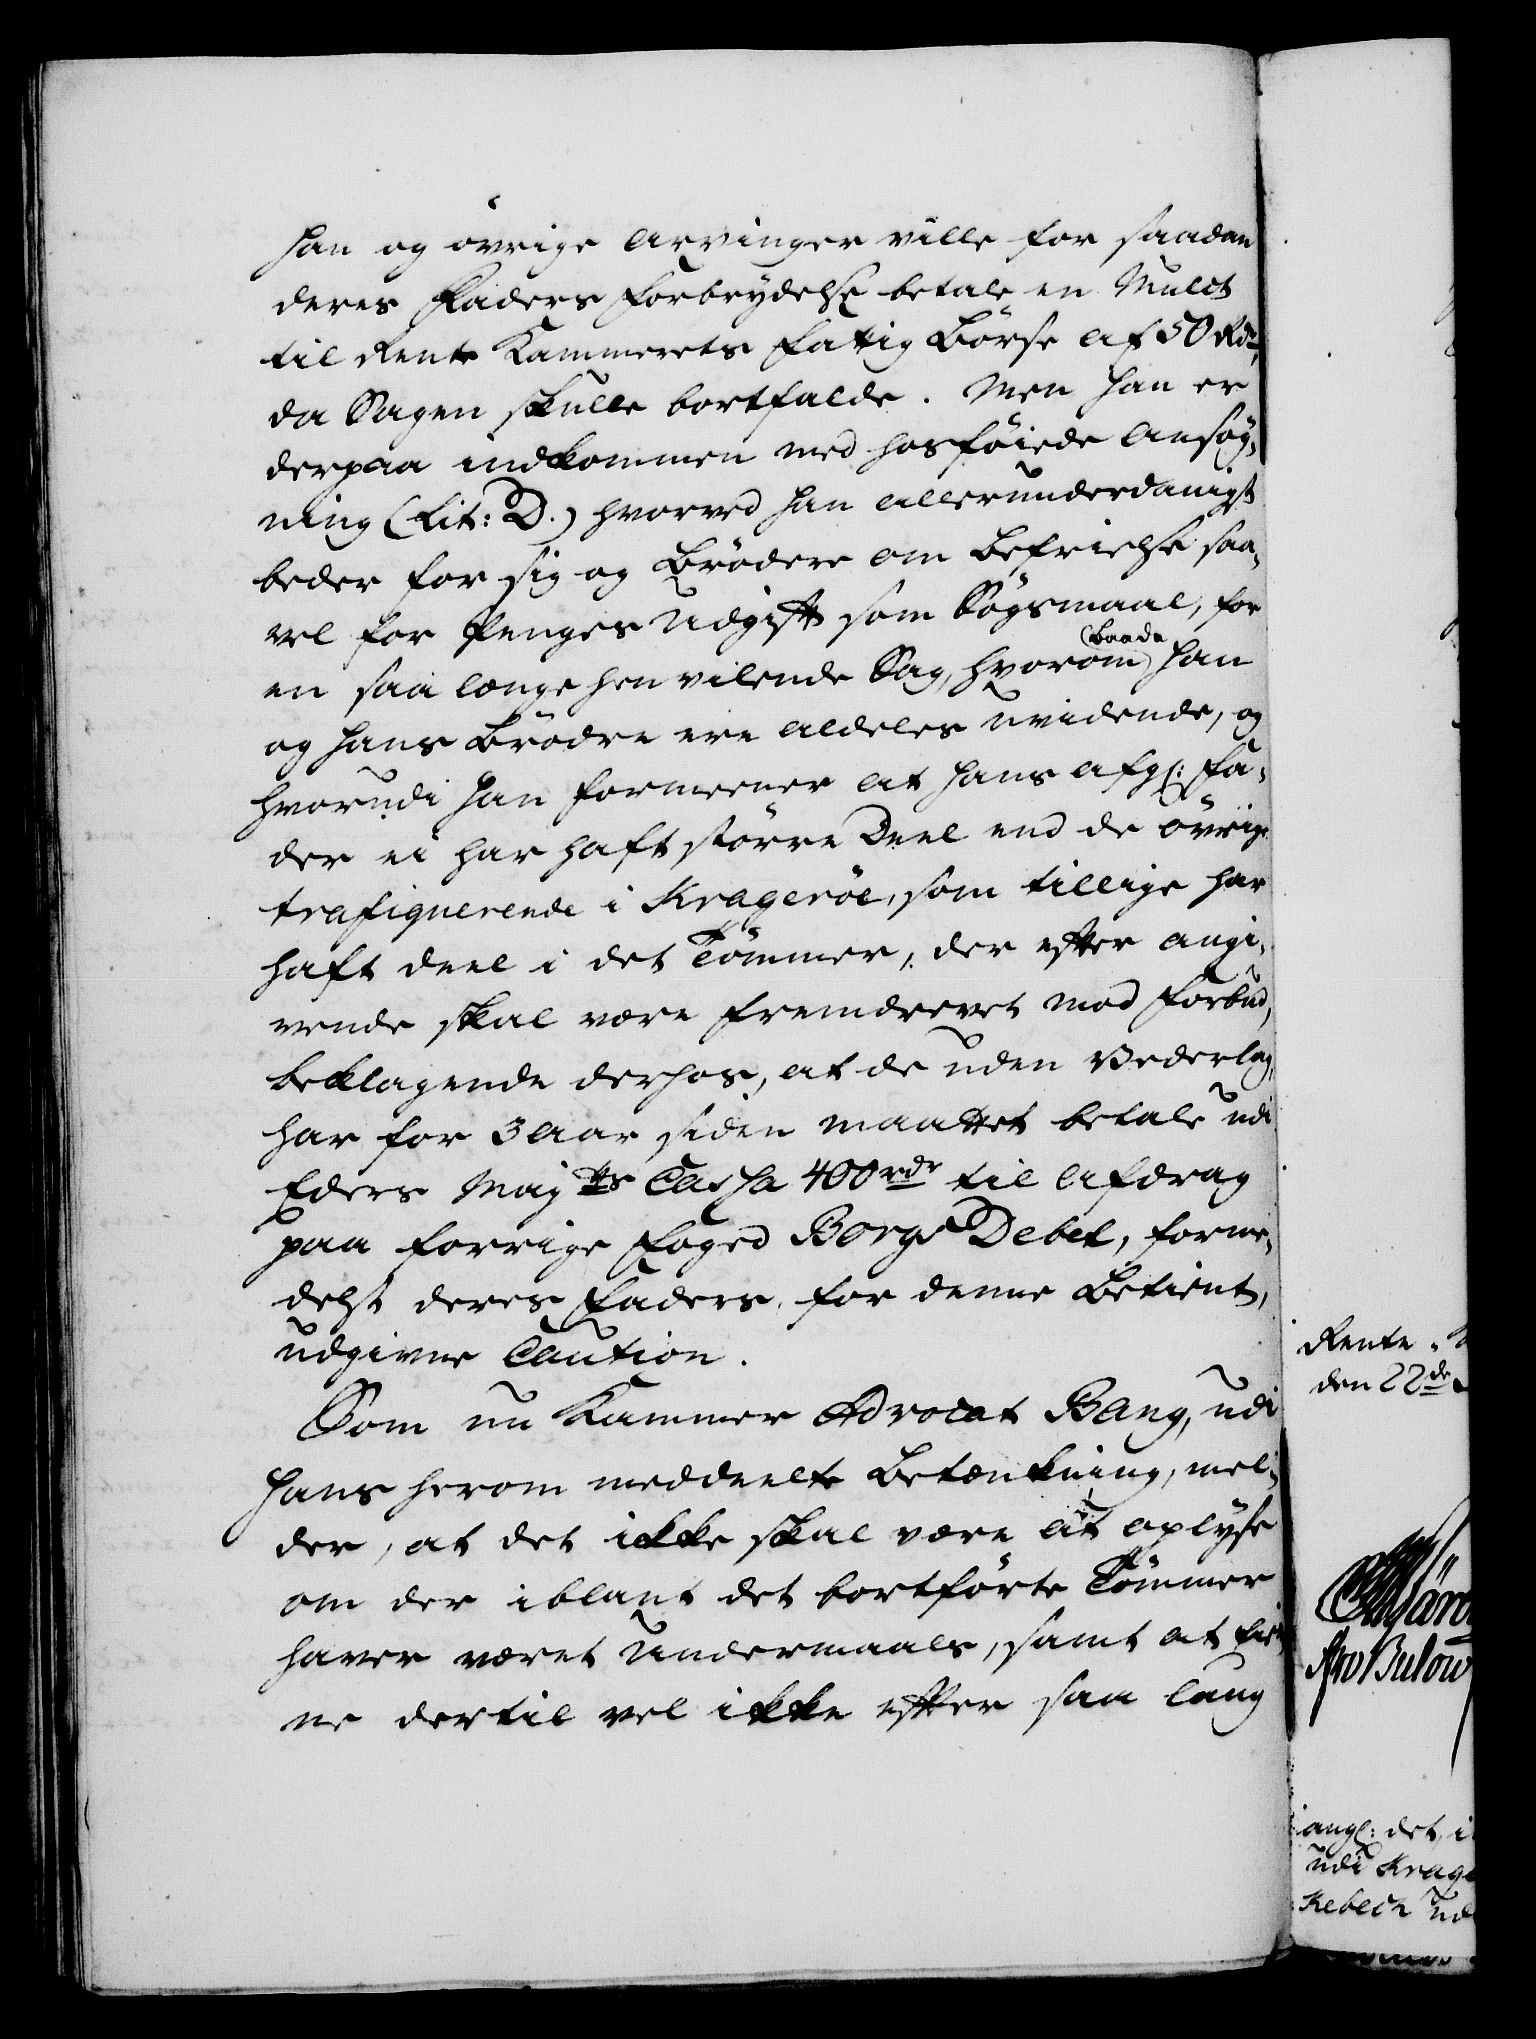 han og övrige Arvinger ville for saadan
deres Faders Forbrydelse betale en Mulct
til Rente Kammerets Fattig Börse af 50 Rdr,
da Sagen skulle bortfalde. Men han er
derpaa indkommen med hosföiede Ansög-
ning (Lit: D.) hvorved han allerunderdanigst
beder for sig og Brödere om Befrielse saa-
vel for Penges Udgift som Sögsmaal, for
en saa længe hen vilende Sag, hvorom (baade) han
og hans Brödre ere aldeles uvidende, og
hvorudi han formeener at hans afg: Fa-
der ei har haft större Deel end de övrige
trafiquerende i Krageröe, som tillige har
haft deel i det Tömmer, der efter angi-
vende skal være fremdrevet mod Forbud,
beklagende derhos, at de uden Vederlag,
har for 3 Aar siden maattet betale udi
Eders Mayts Cassa 400 rdr til Afdrag
paa forrige Foged Borgs Debet, forme-
delst deres Faders, for denne Betient,
udgivne Caution.
Som nu Kammer Advocat Bang, udi
hans herom meddeelte Betænkning, mel-
der, at det ikke skal være at oplyse
om der iblant det bortförte Tömmer
haver været Undermaals, samt at
ne dertil vel ikke efter saa lang
Rente-
den 22de
Bulow
angl: det i
udi Krage
Rebech ud